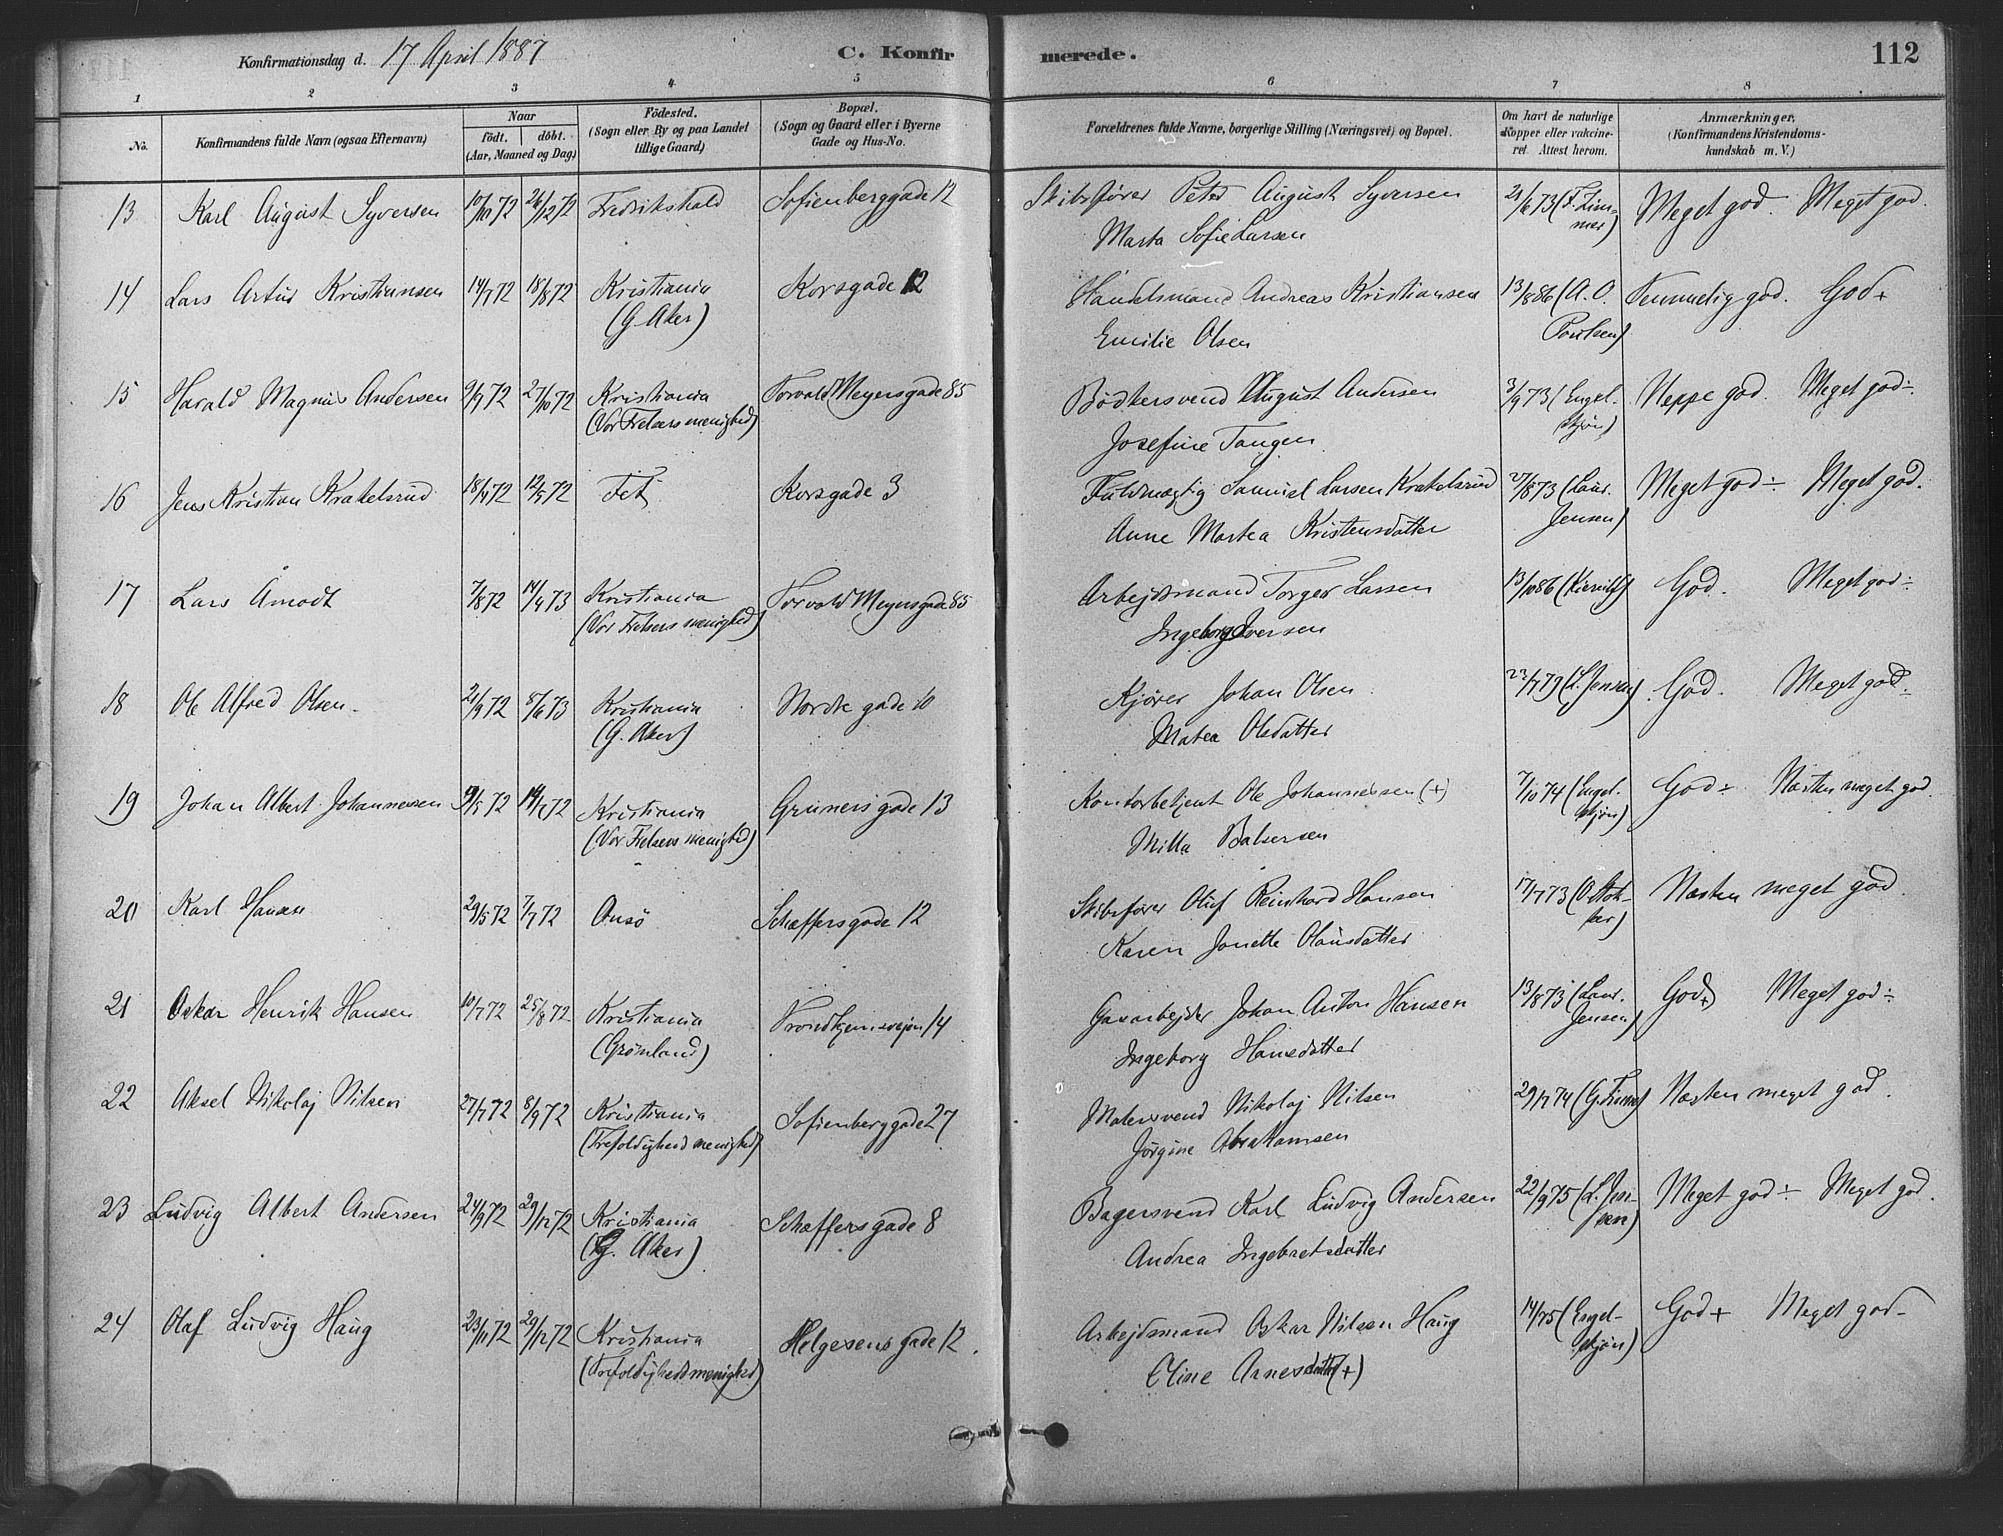 Konfirmationsdag d. 17 April 1887
C. Konfirmerede.
112
1 2 3 4 5 6 7 8
No.
Konfirmandens fulde Navn (ogsaa Efternavn)
Naar
födt. döbt.
(Aar, Maaned og Dag)
Födested.
(Sogn eller By og paa Landet
tillige Gaard)
Bopæl.
(Sogn og Gaard eller i Byerne
Gade og Hus-No.
Forældrenes fulde Navne, borgerlige Stilling (Næringsvei) og Bopæl.
Om havt de naturlige
Kopper eller vakcine-
ret. Attest herom.
Anmærkninger.
(Konfirmandens Kristendoms-
kundskab m. V.)
13 Karl August Syversen 10/10 72 26/12 72 Fredrikshald Sofienberggade 12 Skibsfører Peter August Syversen 21/6 73 (F. Lim- Meget god. Meget god.
Marta Sofie Larsen mer)
14 Lars Artur Kristiansen 14/7 72 18/8 72 Kristiania Korsgade 12 Handelsmand Andreas Kristiansen 13/8 86 (A. O. Temmelig god. God +
(G. Aker) Emilie Olsen Poulsen)
15 Harald Magnus Andersen 9/9 72 27/10 72 Kristiania Torvald Meyersgade 85 Bødkersvend August Andersen 3/9 73 (Engel- Neppe god. Meget god ÷
(Vor Frelsers menighed) Josefine Tangen skjøn)
16 Jens Kristian Krakelsrud 18/4 72 12/5 72 Fet Korsgade 3 Fuldmægtig Samuel Larsen Krakelsrud 27/8 73 (Laur. Meget god ÷ Meget god.
Anne Martea Kristensdatter Jensen)
17 Lars Åmodt 7/8 72 14/4 73 Kristiania Torvald Meyersgade 85 Arbejdsmand Torger Larsen 13/10 86 God. Meget god ÷
(Vor Frelsers menighed) Ingeborg Iversen
18 Ole Alfred Olsen 21/9 72 8/6 73 Kristiania Nordre gade 10 Kjører Johan Olsen 22/7 79 (L. Jensen) God. Meget god ÷
(G. Aker) Matea Olsdatter
19 Johan Albert Johannessen 19/5 72 14/7 72 Kristiania Grüners gade 13 Kontorbetjent Ole Johannessen (+) 7/10 74 (Engel- God ÷ Næsten meget god.
(Vor Frelsers menighed) Milla Balsersen skjøn)
20 Karl Hansen 29/5 72 7/7 72 Onsö Schæffersgade 12 Skibsfører Oluf Reinhard Hansen 17/7 73 Næsten meget god.
Karen Jonette Olausdatter
21 Oskar Henrik Hansen 10/7 72 25/8 72 Kristiania Trondhjemsvejen 14 Gasarbejder Johan Anton Hansen 13/8 73 (Laur. God + Meget god ÷
(Grønland) Ingeborg Hansdatter Jensen)
22 Aksel Nikolaj Nilsen 27/7 72 8/9 72 Kristiania Sofienberggade 27 Malersvend Nikolaj Nilsen 29/7 74 Næsten meget god.
(Trefoldigheds menighed) Jørgine Abrahamsen
23 Ludvig Albert Andersen 24/9 72 29/12 72 Kristiania Schæffersgade 8 Bagersvend Karl Ludvig Andersen 22/9 75 (L. Jen- Meget god ÷ Meget god.
(G. Aker) Andrea Ingebretsdatter sen)
24 Olaf Ludvig Haug 23/11 72 29/12 72 Kristiania Helgesens gade 12. Arbejdsmand Oskar Nilsen Haug 14/7 75 (Engel- God + Meget god -
(Trefoldigheds menighed) Oline Arnesdatter (+) skjøn)